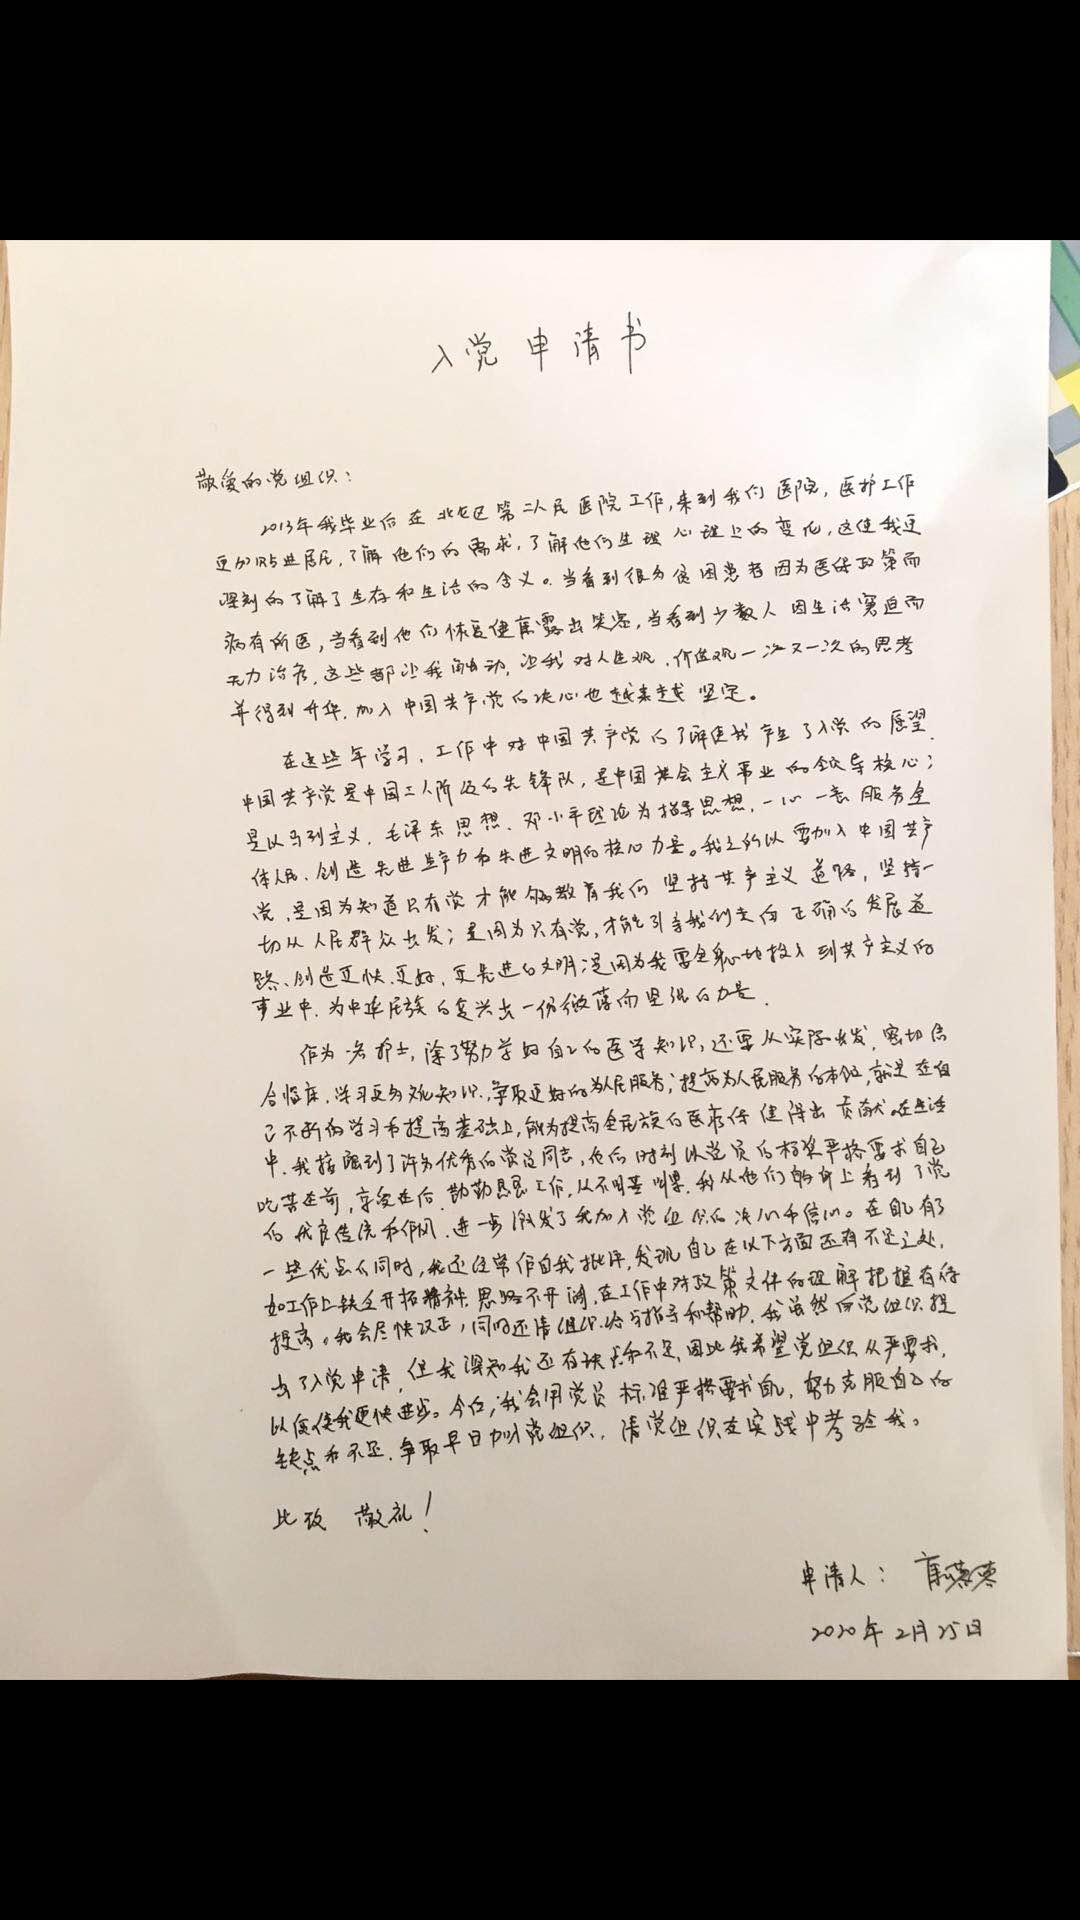 入党申请书
敬爱的党组织：
2013年我毕业后在北屯区第二人民医院工作，来到我们医院，医护工作
更加贴进居民，了解他们的需求，了解他们生理心理上的变化，这使我更
深刻的了解了生存和生活的含义。当看到很多贫困患者因为医保政策而
病有所医，当看到他们恢复健康露出笑容，当看到少数人因生活窘迫而
无力治疗，这些都让我触动，让我对人生观、价值观一次又一次的思考
并得到升华，加入中国共产党的决心也越来越坚定。
在这些年学习、工作中对中国共产党的了解使我产生了入党的愿望，
中国共产党是中国工人阶级的先锋队，是中国社会主义事业的领导核心；
是以马列主义、毛泽东思想、邓小平理论为指导思想，一心一意服务全
体人民、创造先进生产力和先进文明的核心力量。我之所以要加入中国共产
党，是因为知道只有党才能够教育我们坚持共产主义道路，坚持一
切从人民群众出发；是因为只有党，才能引导我们走向正确的发展道
路、创造更快、更好、更先进的文明；是因为我要全身心地投入到共产主义的
事业中，为中华民族的复兴出一份微薄而坚强的力量。
作为一名护士，除了努力学好自己的医学知识，还要从实际出发，密切结
合临床，学习更多文化知识，争取更好的为人民服务；提高为人民服务的本领，就是在自
己不断的学习和提高基础上，能为提高全民族的医疗保健得出贡献。在生活
中，我接触到了许多优秀的党员同志，他们时刻以党员的标准严格要求自己
吃苦在前，享受在后，勤勤恳恳工作，从不叫苦叫累，我从他们的身上看到了党
的优良传统和作风，进一步激发了我加入党组织的决心和信心。在自己有了
一些优点的同时，我还经常作自我批评，发现自己在以下方面还有不足之处，
如工作上缺乏开拓精神，思路不开阔，在工作中对政策文件的理解把握有待
提高。我会尽快改正，同时还请组织给与指导和帮助，我虽然向党组织提
出了入党申请，但我深知我还有缺点和不足，因此我希望党组织从严要求，
以便使我更快进步。今后，我会用党员标准严格要求自己，努力克服自己的
缺点和不足，争取早日加入党组织，请党组织在实践中考验我。
此致 敬礼！
申请人：
2020年2月25日